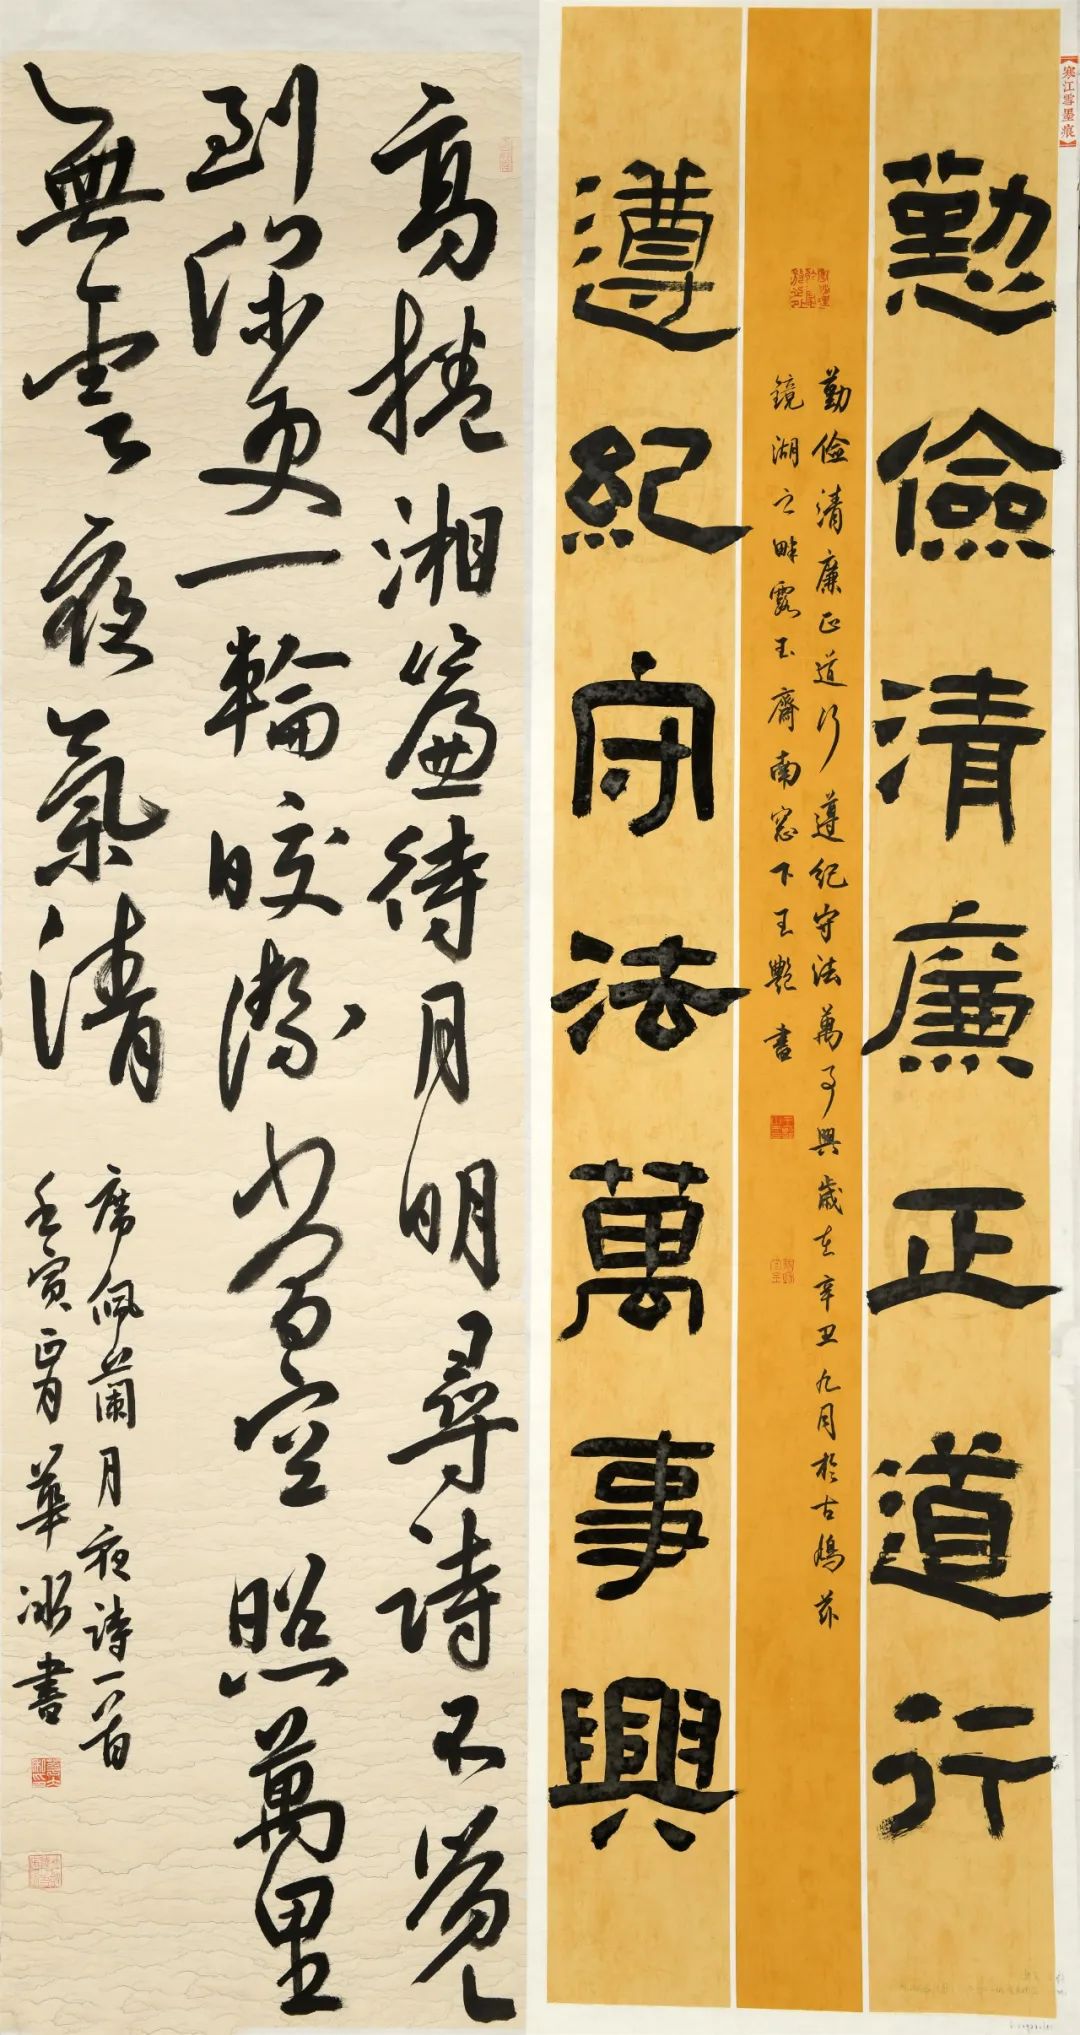 【寒江雪墨痕】
勤儉清廉正道行
勤儉清廉正道行遵紀守法萬事興歲在辛丑九月於古鳩茲
鏡湖之畔露玉齋南窓下王艷書
遵紀守法萬事興
高捲湘簾待月明尋詩不覺
到深更一輪皎潔當空照萬里
無雲夜氣清
席佩蘭月夜詩一首
壬寅正月華冰書